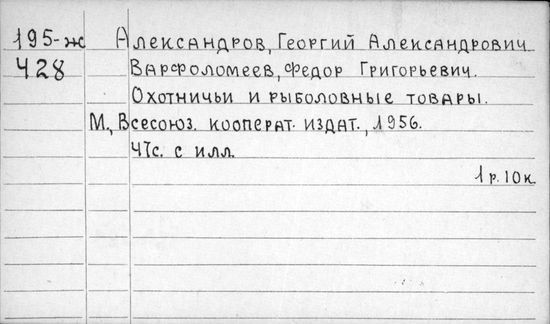 195-ж Александров, Георгий Александрович
428 Варфоломеев, Федор Григорьевич.
Охотничьи и рыболовные товары.
М., Всесоюз. кооперат. издат., 1956.
47с. с илл.
1р. 10к.